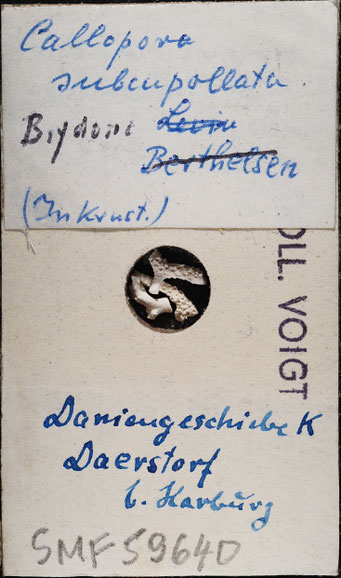 Callopora
subcupollata
Brydone Levin
Berthelsen
(Inkrust.)
OLL. VOIGT
Daniengeschiebe K
Daerstorf
b. Harburg
SMF 59640